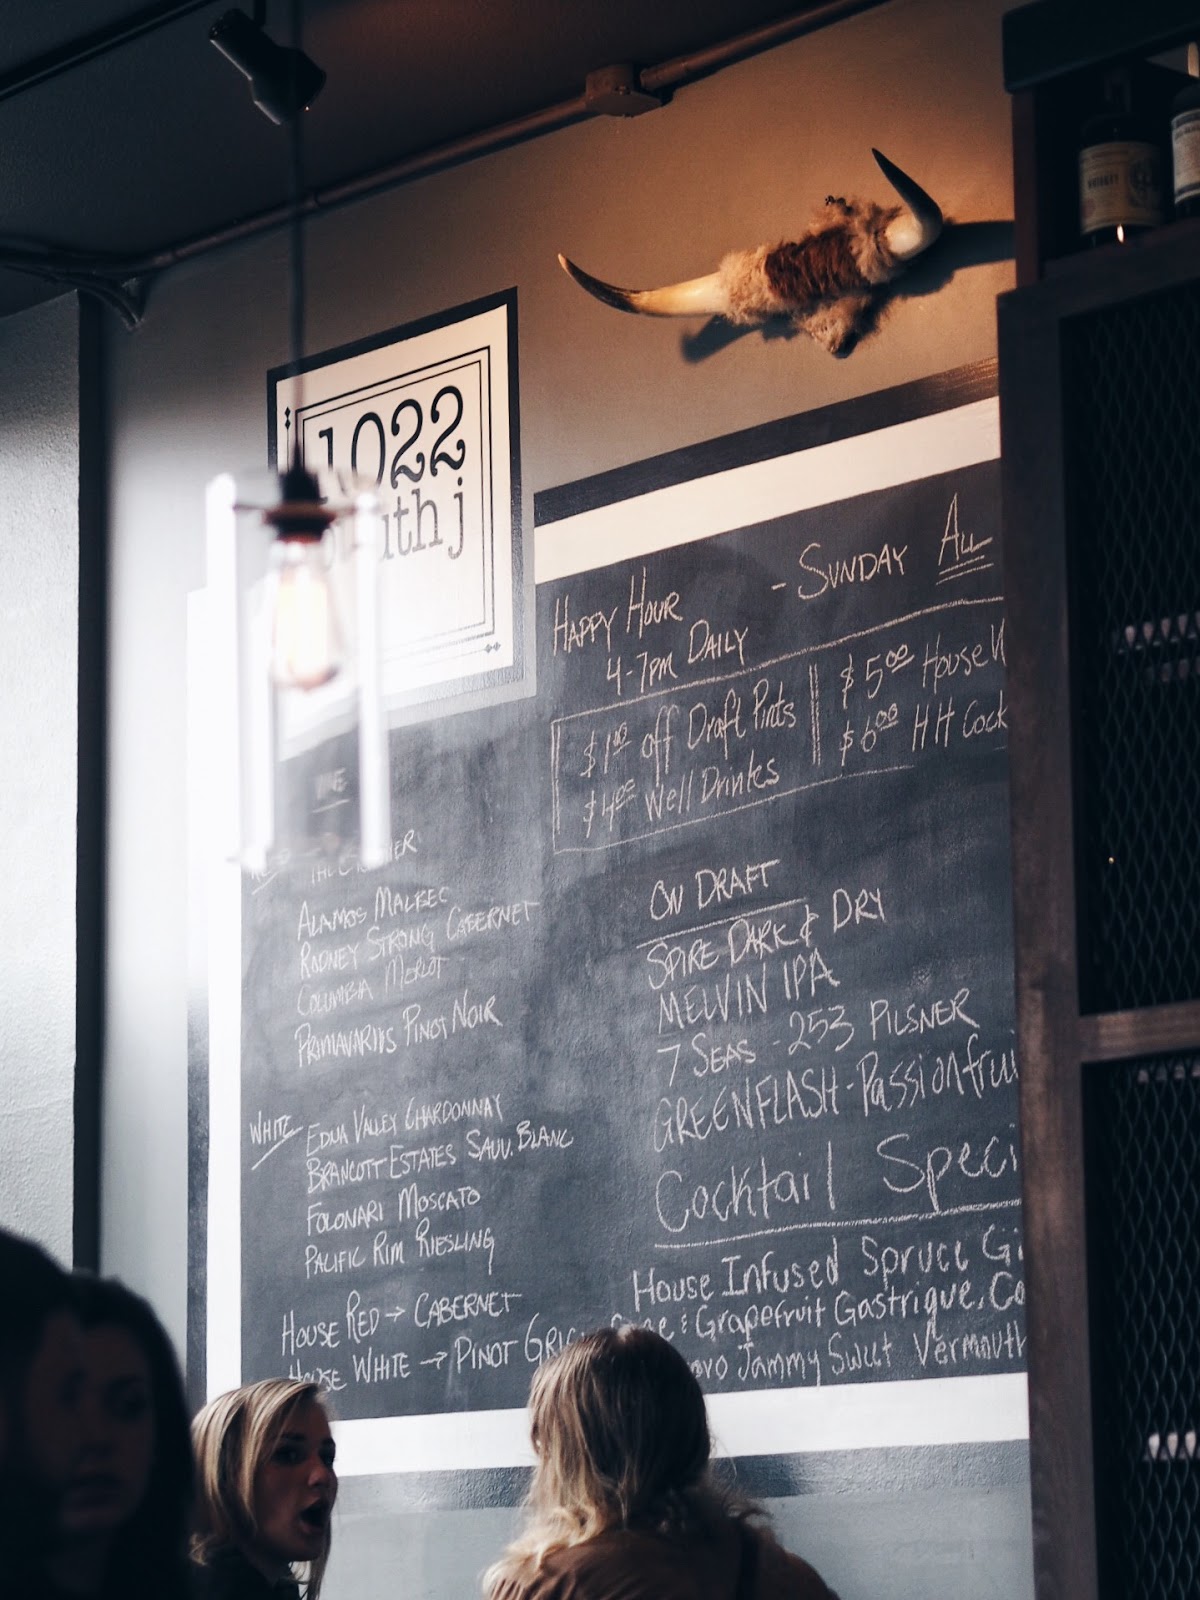 1022
south j
HAPPY HOUR
4-7PM DAILY
- SUNDAY ALL
$1.00 off Draft Pints
$4.00 Well Drinks
$5.00 House
$6.00 HH
WINE
ALAMOS MALBEC
RODNEY STRONG CABERNET
COLUMBIA MERLOT
PINOT NOIR
WHITE
EDNA VALLEY CHARDONNAY
BRANCOTT ESTATES SAUV. BLANC
FOLONARI MOSCATO
PACIFIC RIM RIESLING
HOUSE RED → CABERNET
HOUSE WHITE → PINOT
ON DRAFT
SPIRE DARK & DRY
MELVIN IPA
7 SEAS - 253 PILSNER
GREENFLASH - Passionfrui
Cocktail Speci
House Infused Spruce Gi
& Grapefruit Gastrique, Co
Jammy Sweet Vermouth